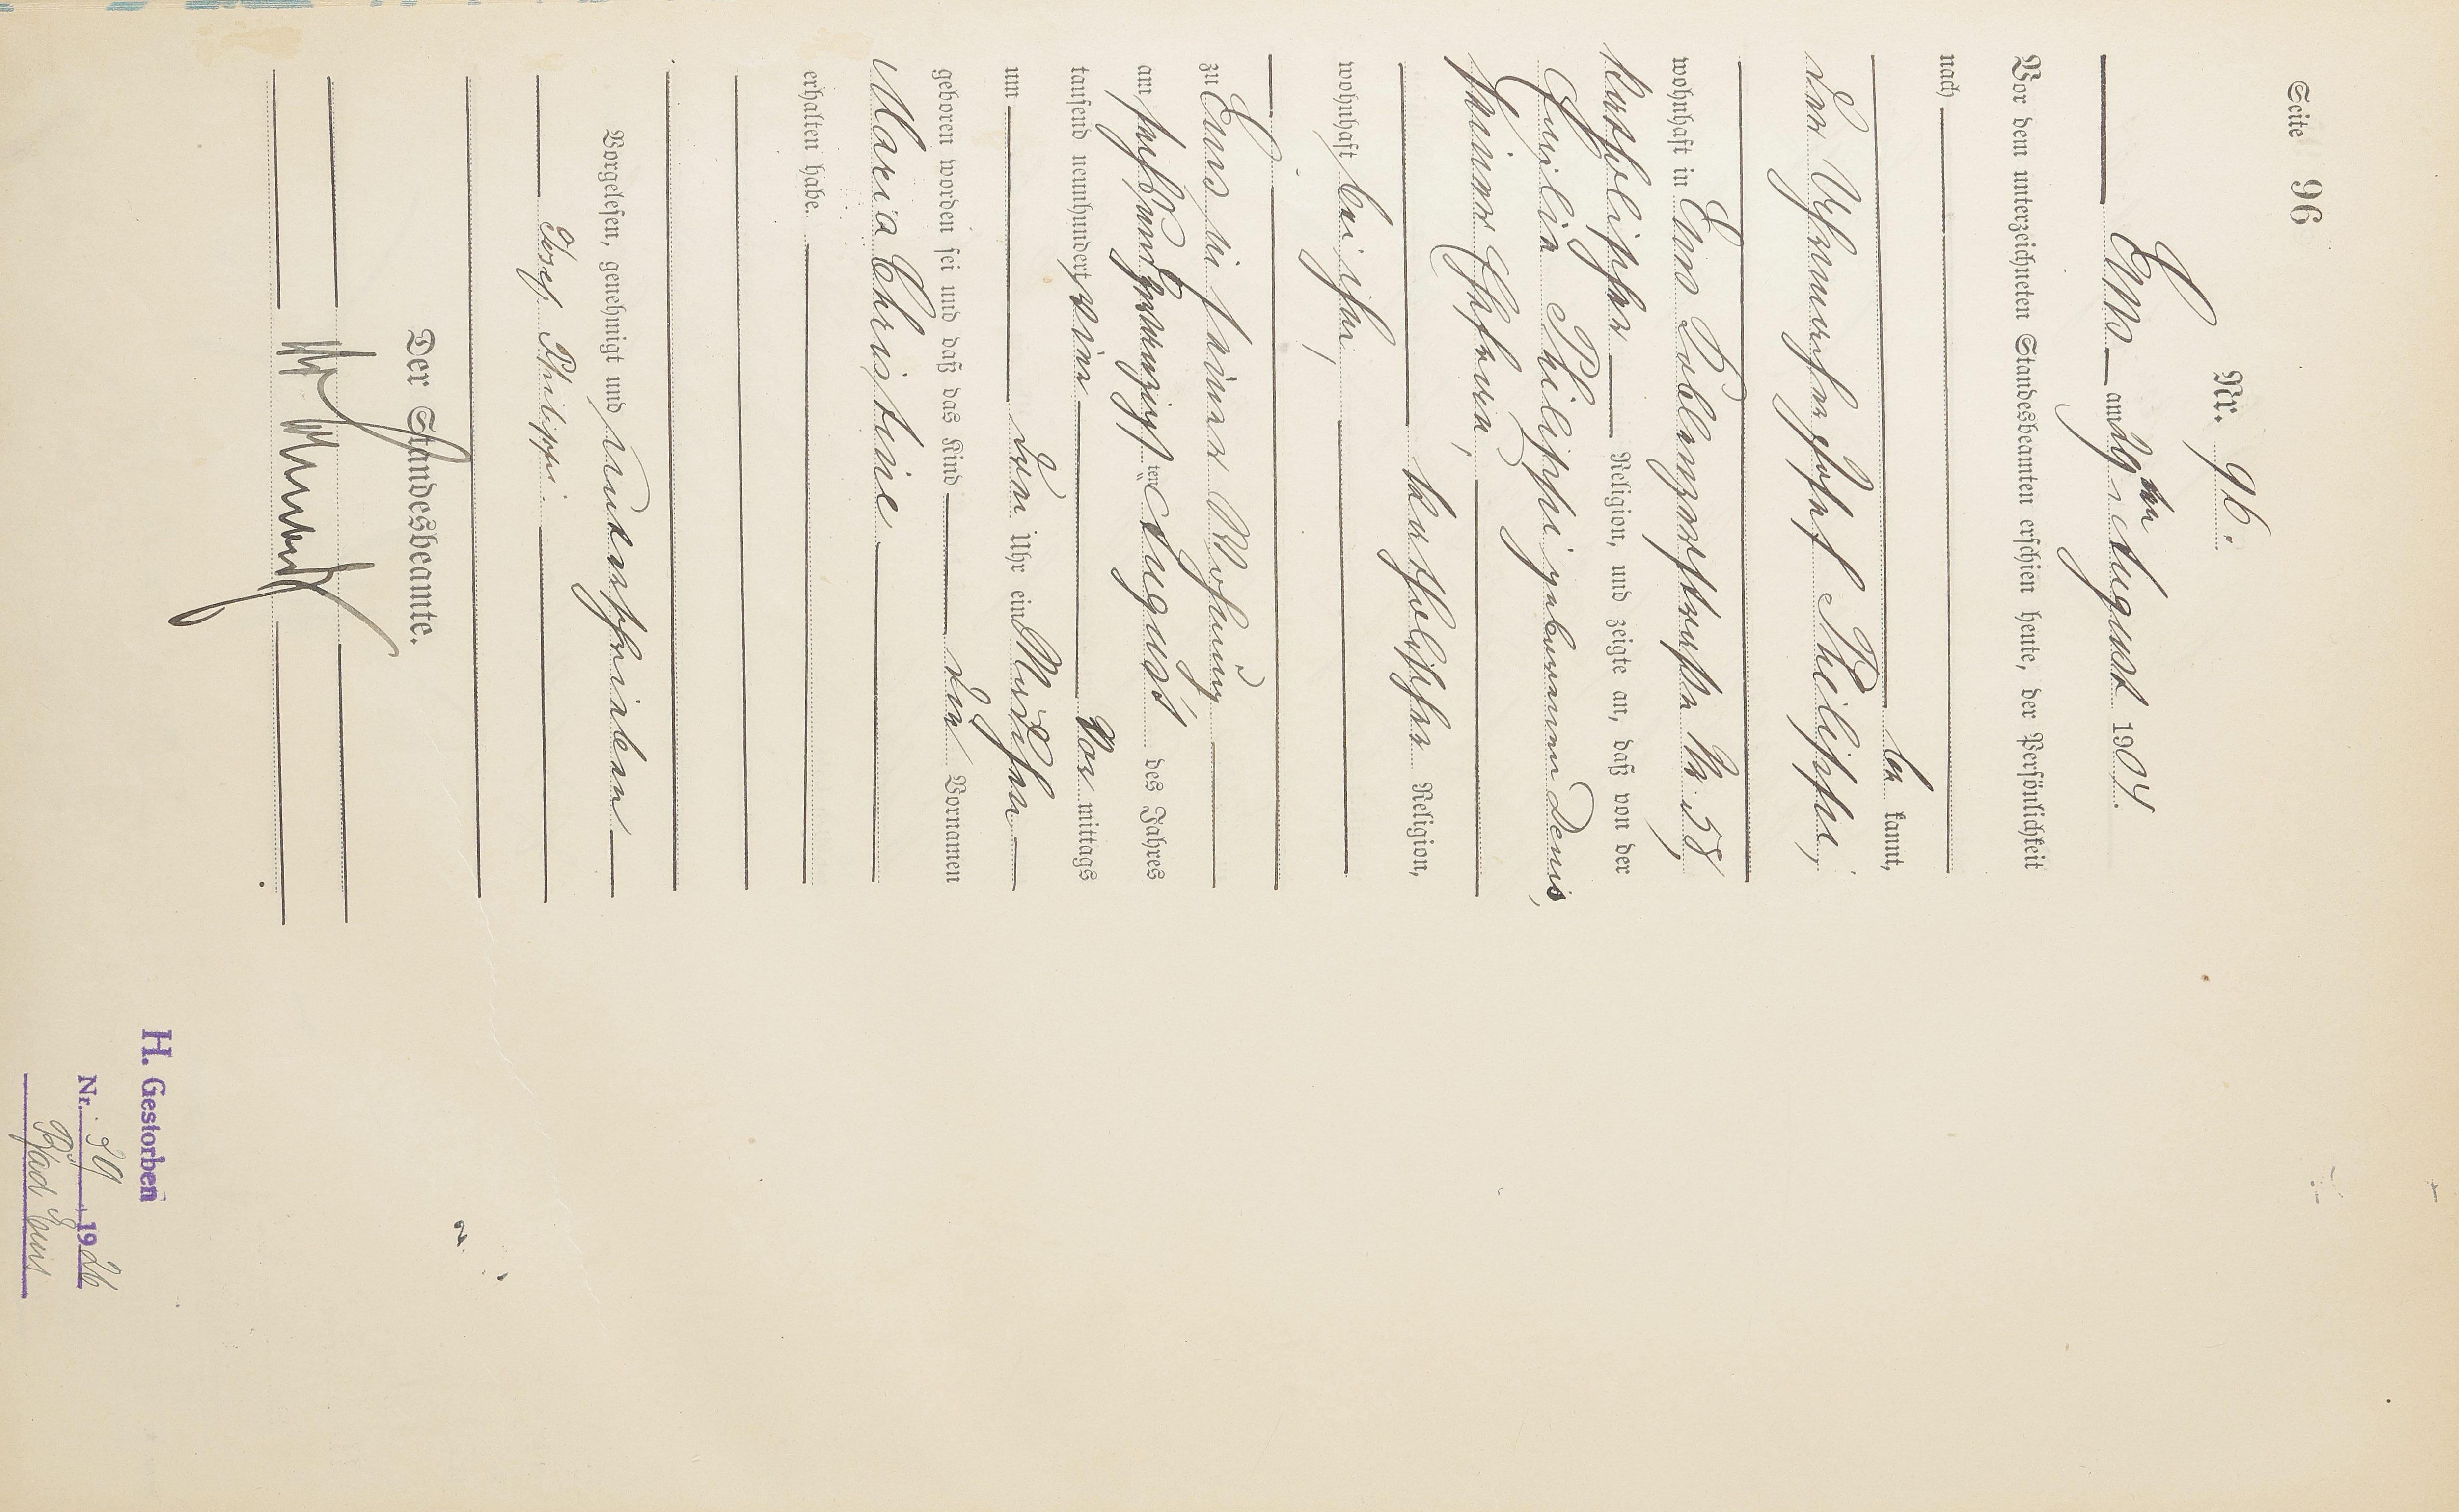 Seite 96
Nr. 96.
Ems am 29ten August 1904.
Vor dem unterzeichneten Standesbeamten erschien heute, der Persönlichkeit
nach
be kannt,
der Josef Philippi,
wohnhaft in Ems Coblenzerstraße Nr 58,
katholischer Religion, und zeigte an, daß von der
Philippi geborenen Denis,
seiner Ehefrau,
katholischer Religion,
wohnhaft bei ihm,
zu Ems in seiner Wohnung
am sechsundzwanzigsten August des Jahres
tausend neunhundert vier Vor mittags
um Uhr ein Mädchen
geboren worden sei und daß das Kind die Vornamen
Maria Christine
erhalten habe.
Vorgelesen, genehmigt und unterschrieben
Josef Philippi.
Der Standesbeamte.
H. Gestorben
Nr. 1926
Bad Ems